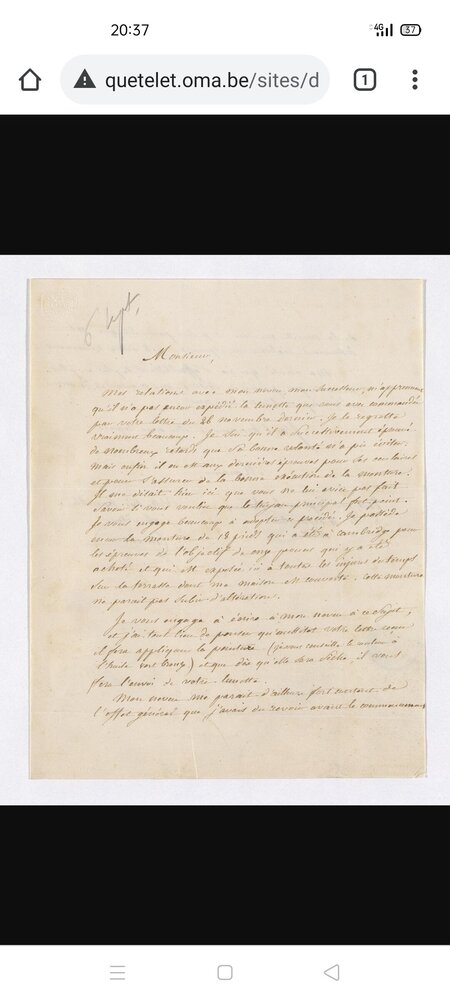 20:37
4G
37
quetelet.oma.be/sites/d
1
6 Sept.
Monsieur,
Mes relations avec mon neveu mon successeur, m'apprennent
qu'il n'a pas encore expédié la lunette que vous avez commandée
par votre lettre du 26 novembre dernier. Je le regrette
vraiment beaucoup. Je sais qu'il a successivement éprouvé
de nombreux retards que sa bonne volonté n'a pu éviter.
mais enfin il en est aux dernières épreuves pour
et pour s'assurer de la bonne exécution de la monture.
Il me disait bien ici que vous ne lui aviez pas fait
savoir si vous vouliez que le tuyau principal fut peint.
Je vous engage beaucoup à adopter ce procédé. Je possède
encore la monture de 18 pieds qui a été à Cambridge pour
les épreuves de l'objectif de onze pouces qui y a été
acheté et qui est exposée ici à toutes les injures du temps
sur la terrasse dont ma maison est couverte. cette monture
ne parait pas subir d'altération.
Je vous engage à écrire à mon neveu à ce sujet,
et j'ai tout lieu de penser qu'aussitôt votre lettre reçue
il fera appliquer la peinture (je vous conseille la couleur à
l'huile vert bronze) et que dès qu'elle sera sèche, il vous
fera l'envoi de votre lunette.
Mon neveu me parait d'ailleurs fort content de
l'effet général que j'avais du revoir avant le commencement